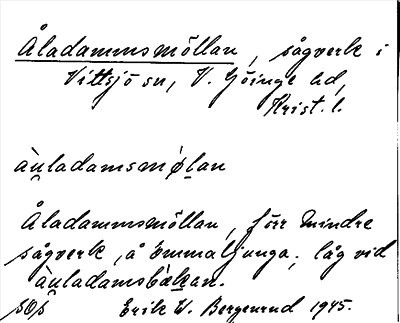 Åladammsmöllan, sågverk i
Vittsjö sn, V. Göinge hd,
Krist. l.
àu̯ladamsmø̀lan
Åladammsmöllan, förr mindre
sågverk, å Emmaljunga; låg vid
àu̯ladamsbäkan.
Erik W. Bergenrud 1945.